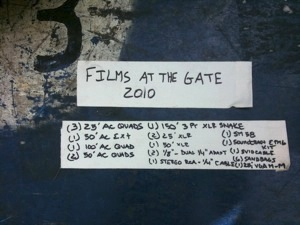 3
FILMS AT THE GATE
2010
(3) 25' AC QUADS
(1) 50' AC EXT
(1) 100' AC QUAD
(2) 50' AC QUADS
(1) 150' 3 PT XLR SNAKE
(2) 25' XLR
(1) 50' XLR
(2) 1/8" - DUAL 1/4" ADAPT
(1) STEREO RCA - 1/4" CABLE
(1) SM 58
(1) SOUNDCRAFT
KIT
(1) SVID CABLE
(6) SANDBAGS
(1) 25' VGA M-M